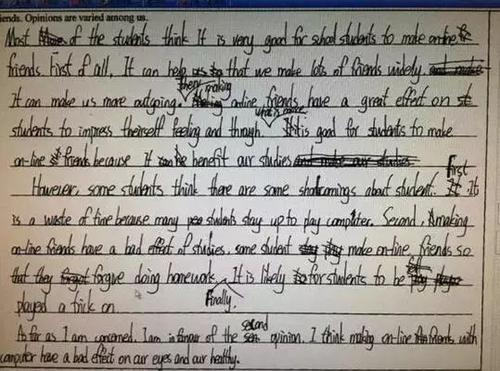 iends. Opinions are varied among us.
Most of the students think It is very good for school students to make online
friends. First of all, It can help that we make lots of friends widely
it can make us more outgoing. Then, making online friends have a great effect on
students to impress theirself feeling and though. what's more It is good for students to make
on-line friends because it can benefit our studies
However, some students think there are some shortcomings about student. First it
is a waste of time because many students stay up to play computer. Second, making
on-line friends have a bad effect of studies. some student make on-line friends so
that they forgive doing homework. Finally. It is likely for students to be
played a trick on.
As far as I am concerned. I am in favour of the second opinion. I think making on-line friends with
computer have a bad effect on our eyes and our healthy.